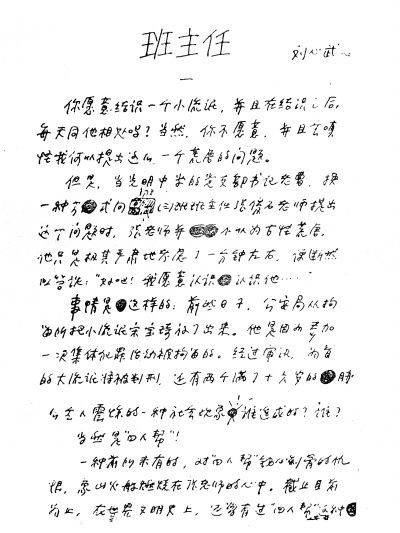 班主任
刘心武
一
你愿意结识一个小流氓，并且在结识之后，
每天同他相处吗？当然，你不愿意，并且会嗔
怪我何以提出这么一个荒唐的问题。
但是，当光明中学的党支部书记老曹，换
一种方式问初三(三)班班主任张俊石老师提出
这个问题时，张老师并不以为古怪荒唐，
他只是极其严肃地考虑了一分钟左右，便断然
回答说：“好吧！我愿意认识认识他……”
事情是这样的：前些日子，公安局从拘
留所把小流氓宋宝琦放了出来。他是因为参加
一次集体犯罪活动被拘留的。经过审讯，为首
的大流氓将被判刑，还有两个满了十六岁的
令人震惊的一种社会现象！谁造成的？谁？
当然是“四人帮”！
一种前所未有的，对“四人帮”铭心刻骨的仇
恨，象火山般燃烧在张老师的心中。截止目前
为止，在世界文明史上，还没有过“四人帮”这种